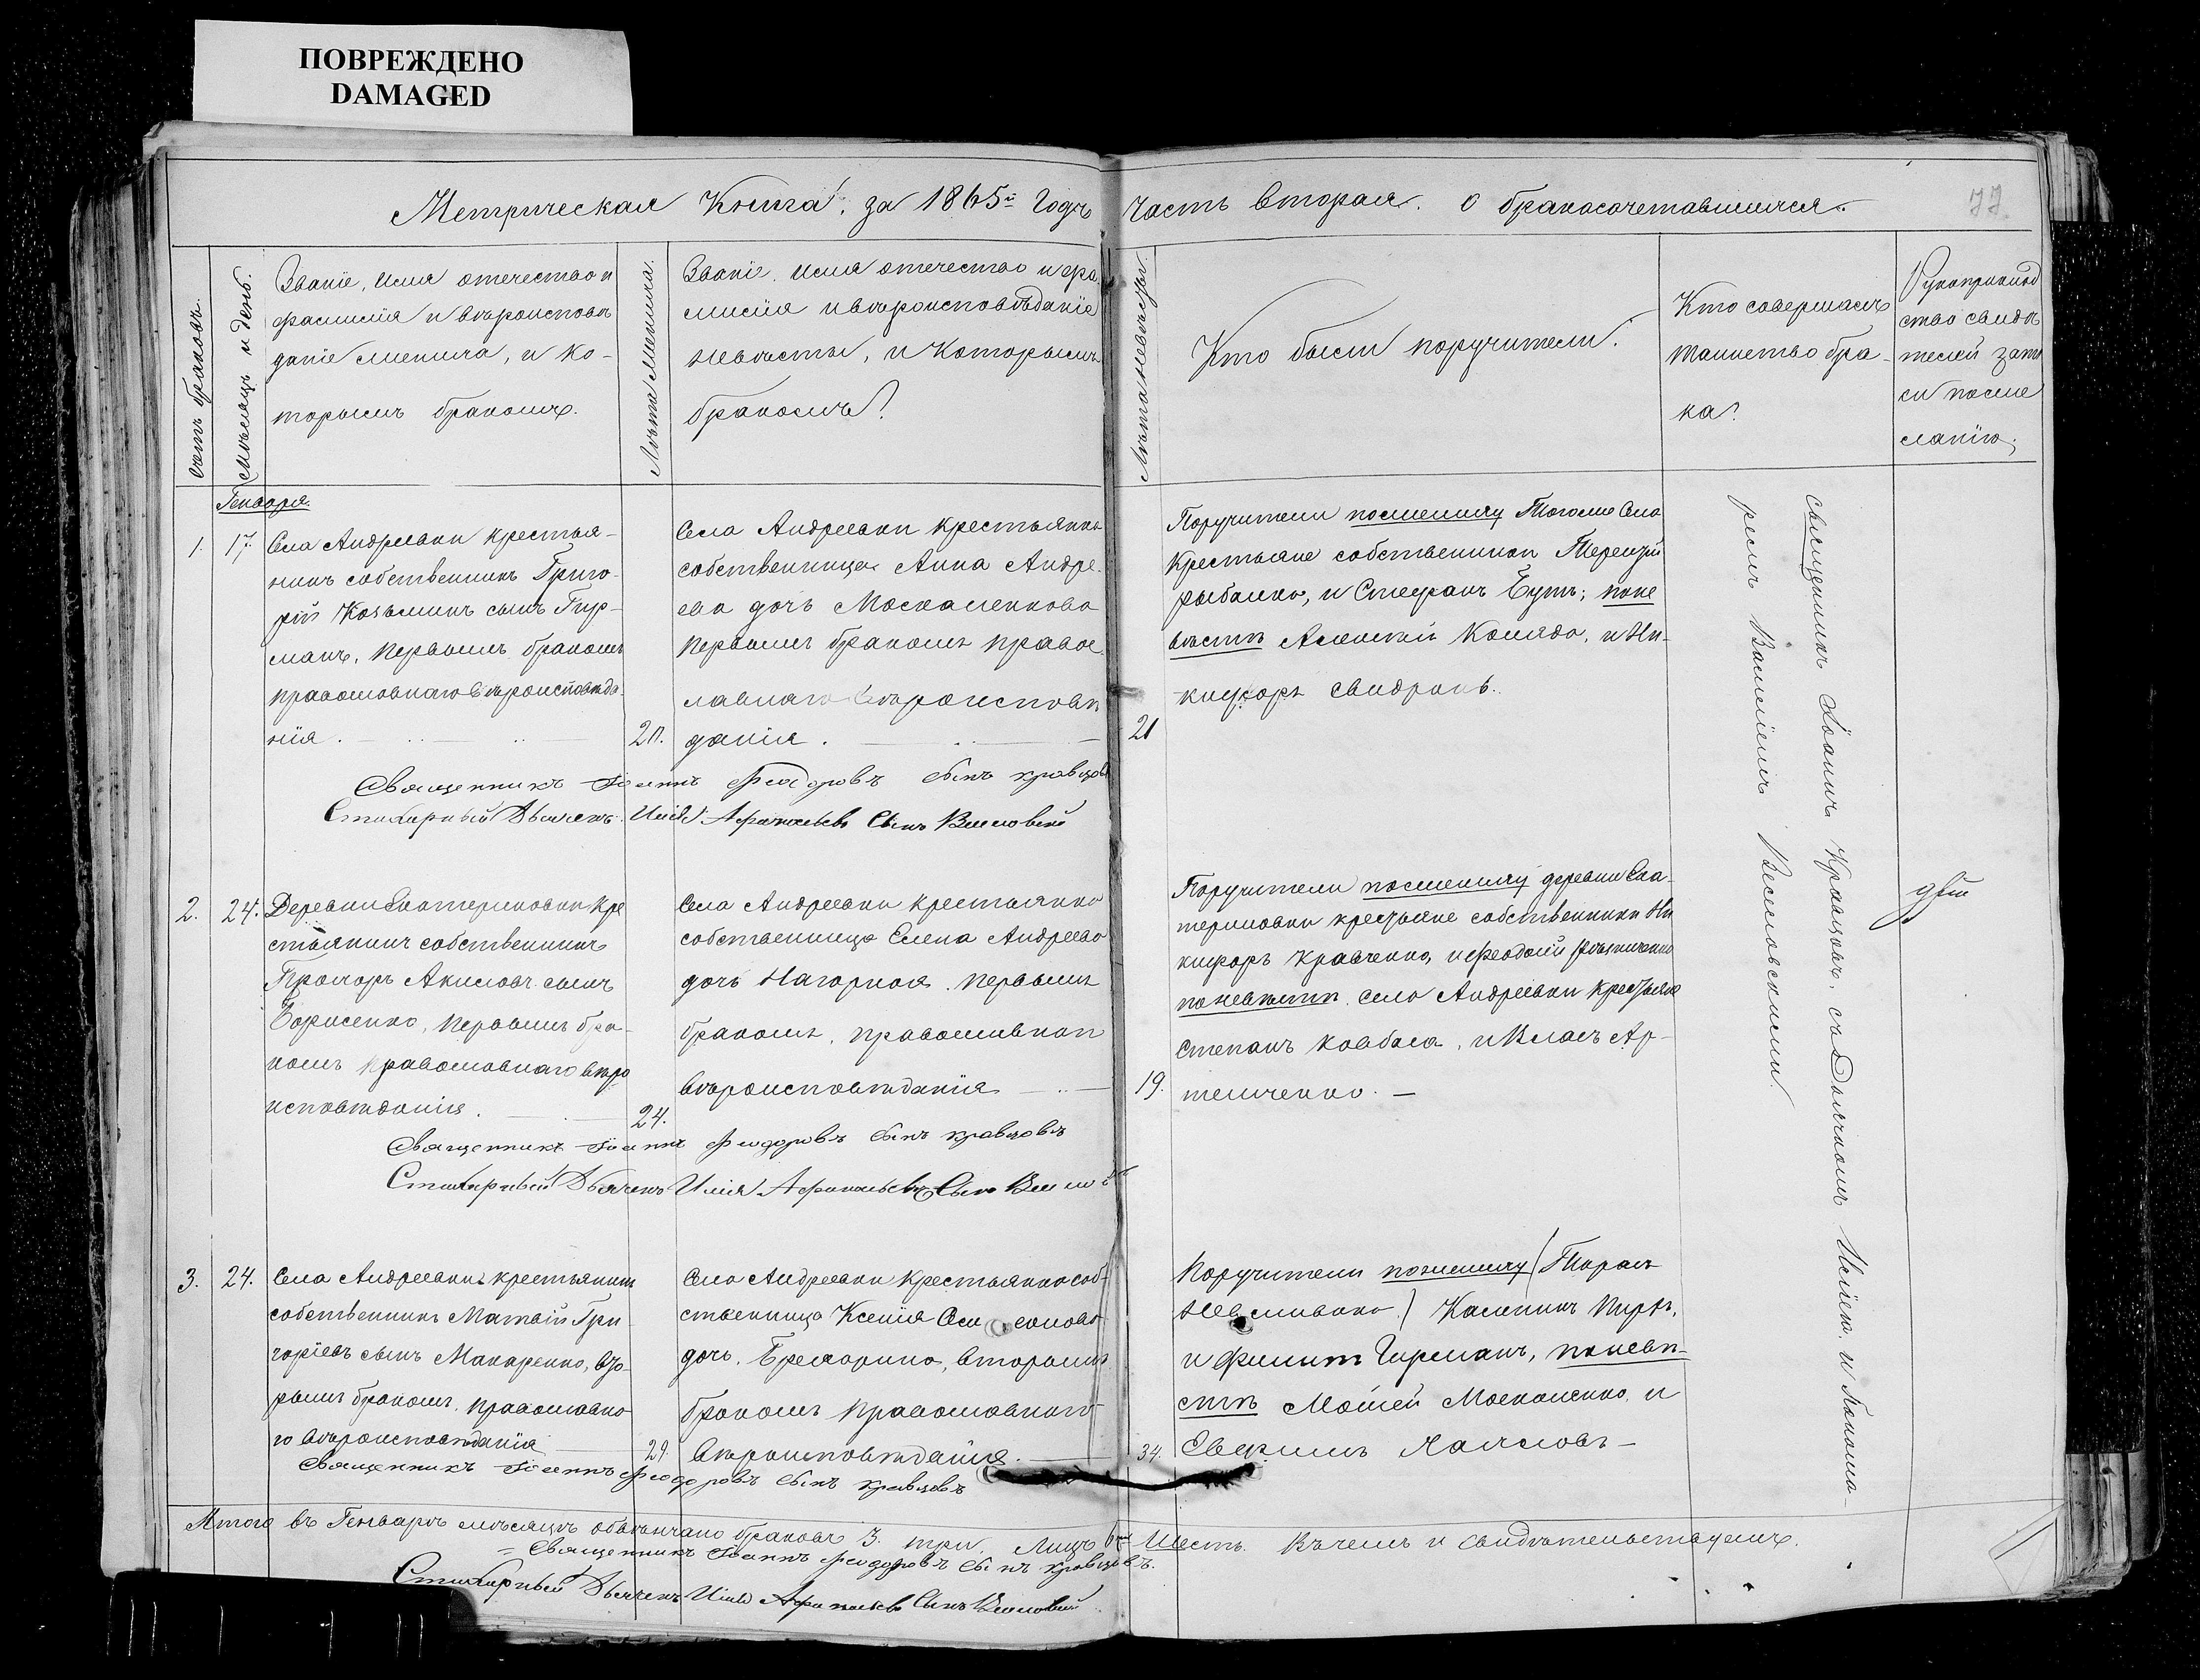 ПОВРЕЖДЕНО
DAMAGED
Метрическая Книга, за 1865й Годъ Часть вторая. о бракосочетавшихся.
77
Счетъ браковъ.
Мѣсяцъ и день.
Званіе, имя отечество и
фамилія и вѣроисповѣ
даніе жениха, и ко-
торымъ бракомъ.
Лѣта жениха.
Званіе, имя отечество и фа
милія и вѣроисповѣданіе
невѣсты, и которымъ
бракомъ?
Лѣта невѣсты.
Кто были поручители.
Кто совершалъ
таинство бра-
ка?
Рукоприклад
ство свидѣ
телей запи
си по же
ланію;
Генваря.
1. 17. Села Андреевки крестья-
нинъ собственникъ Григо-
рій Козьминъ сынъ Гир-
манъ, первымъ бракомъ
православнаго вѣроисповѣда
нія.
20.
Села Андреевки крестьянка
собственница Анна Андре-
ева дочь Москаленкова
первымъ бракомъ правос
лавнаго вѣроисповѣ
данія.
21
Поручители по жениху Тогоже Села
крестьяне собственники Терентій
рыбалко, и Стефанъ Бутъ; по не
вѣстѣ Алексій Коляда, и Ни-
кифоръ Свидранъ.
Священникъ Іоаннъ Феодоровъ сынъ кравцовъ
Стихарный Дьячекъ Илія Афанасьевъ Сынъ
2. 24. Деревни Екатериновки кре
стьянинъ собственникъ
Прохоръ Акимовъ сынъ
Борисенко, первымъ бра-
комъ православнаго вѣро
исповѣданія.
24.
Села Андреевки крестьянка
собственница Елена Андреева
дочь Нагорная. первымъ
бракомъ, православнаго
вѣроисповѣданія
19.
Поручители по жениху деревни Ека-
териновки крестьяне собственники Ни
кифоръ Кравченко, и Феодосій
по невѣстѣ. села Андреевки крестьяне
Степанъ Ковбаса, и Власъ Ар-
темченко. —
Священникъ Іоаннъ Феодоровъ сынъ кравцовъ
Стихарный Дьячекъ Илія Афанасьевъ Сынъ
3. 24. Села Андреевки крестьянинъ
собственникъ Матвій Гри
горіевъ сынъ Макаренко, вто-
рымъ бракомъ. православна
го вѣроисповѣданія
29.
Села Андреевки крестьянка соб-
ственница Ксенія
дочь. вторымъ
бракомъ православнаго
вѣроисповѣданія.
34.
Поручители по жениху Тарасъ
Калиникъ
и Филипъ Гирманъ, по невѣ-
стѣ Моѵсей Москаленко, и
Священникъ Іоаннъ Феодоровъ сынъ кравцовъ
священникъ Іоаннъ Кравцовъ, съ Дьячкомъ Иліею, и Понома-
ремъ Василіемъ Веселовскими
Итого въ Генварѣ мѣсяцѣ обвѣнчано браковъ 3. три. Лицъ 6ть Шесть. Въ чемъ и свидѣтельствуемъ.
Священникъ Іоаннъ Феодоровъ сынъ кравцовъ.
Стихарный Дьячекъ Илія Афанасьевъ Сынъ